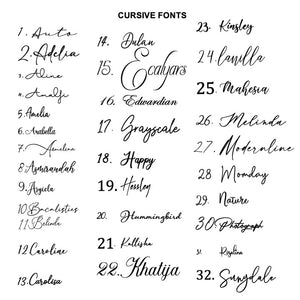 CURSIVE FONTS
1. Auto
2. Adelia
3. Aline
4. Analfi
5. Amelia
6. Arabella
7. Amelina
8. Asmirandah
9. Argiela
10. Bacalisties
11. Belinda
12. Caroline
13. Carolisa
14. Dulan
15. Ecalyars
16. Edwardian
17. Grayscale
18. Happy
19. Hossley
20. Hummingbird
21. Kallisha
22. Khatija
23. Kinsley
24. lavilla
25. Mahesia
26. Melinda
27. Modernline
28. Monday
29. Nature
30. Photograph
31. Rosalina
32. Sunydale